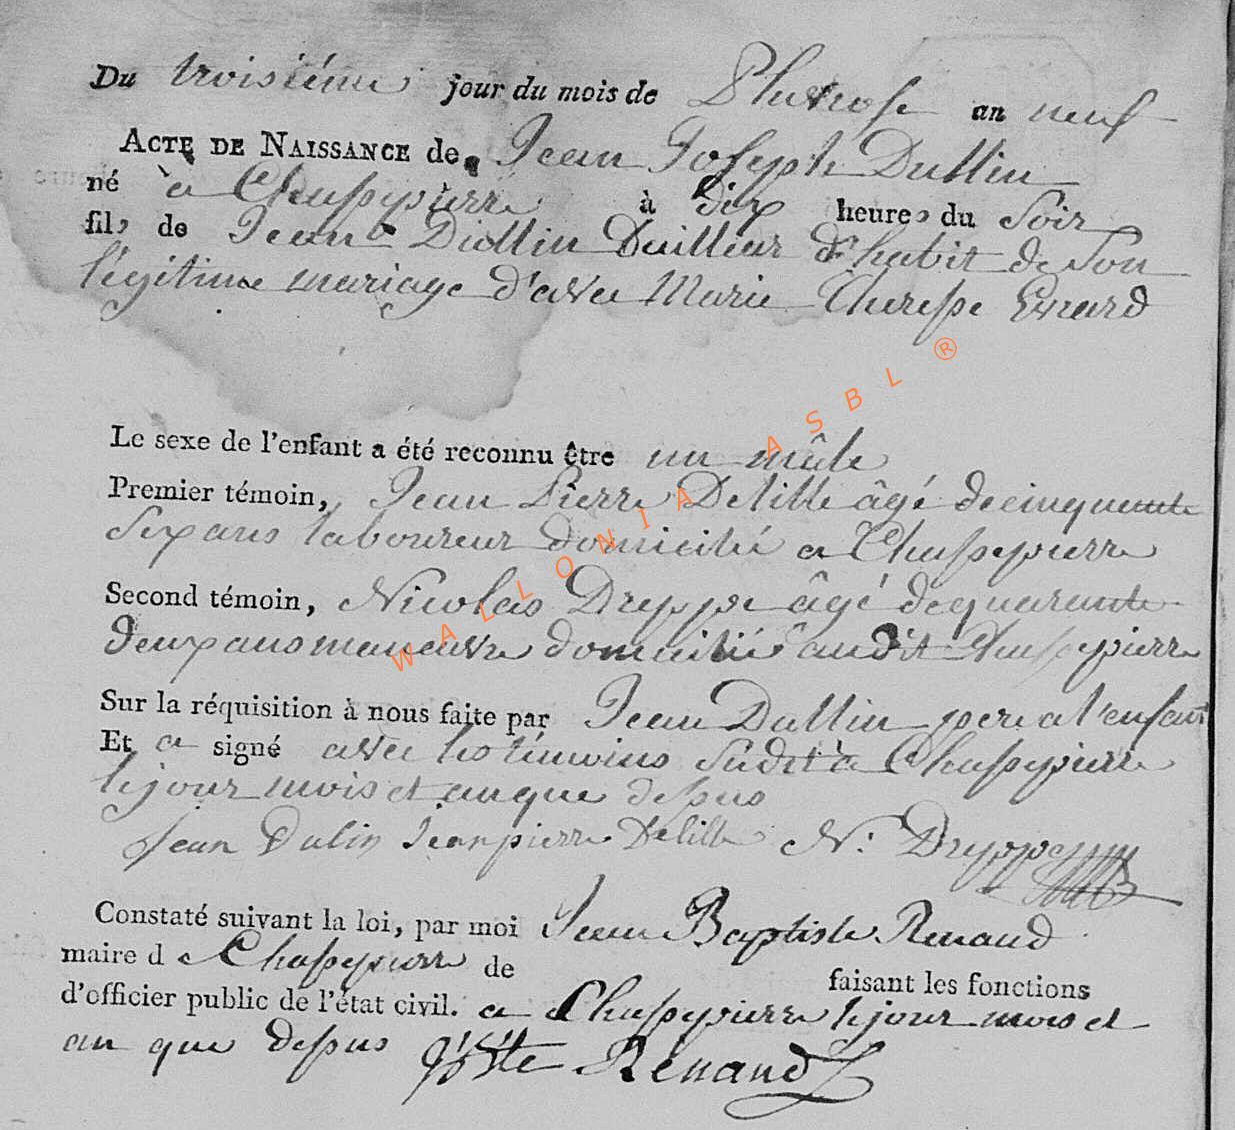 Du troisième jour du mois de Pluviose an neuf
ACTE DE NAISSANCE de Jean Joseph Dullin
né à Chassepierre à dix heures du Soir
fils de Jean Diollin Tailleur d'habit de Son
légitime mariage d'avec Marie Theresse Evrard
Le sexe de l'enfant a été reconnu être un mâle
Premier témoin, Jean Pierre Delille âgé de cinquante
Six ans laboureur domicilié a Chassepierre
Second témoin, Nicolas Dreppe âgé de quarante
deux ans maneuvre domicilié audit Chassepierre
Sur la réquisition à nous faite par Jean Dullin pere a l'enfant
Et a signé avec les témoins Sudit à Chassepierre
le jour mois et an que dessus
Jean Dulin Jean pierre Delille N. Dreppe
Constaté suivant la loi, par moi Jean Baptiste Renaud
maire d e Chassepierre de faisant les fonctions
d'officier public de l'état civil. a Chassepierre le jour mois et
an que dessus Renaud
WALLONIA ASBL ®